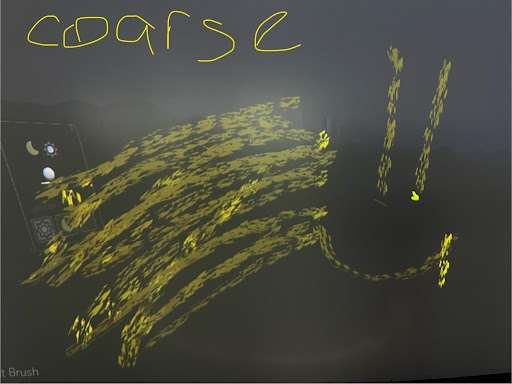 coarse
t Brush